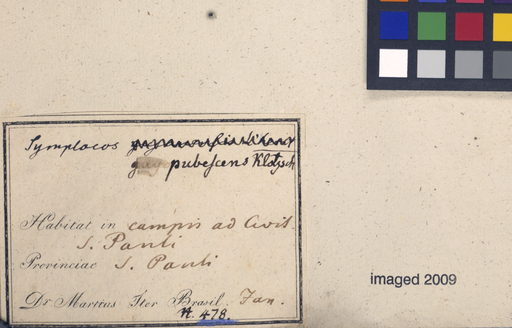 Symplocos
pubescens Klotzsch
Habitat in campis ad Civit.
S. Pauli
Provinciae S. Pauli
Dr Martius Iter Brasil. Jan.
N. 478.
imaged 2009